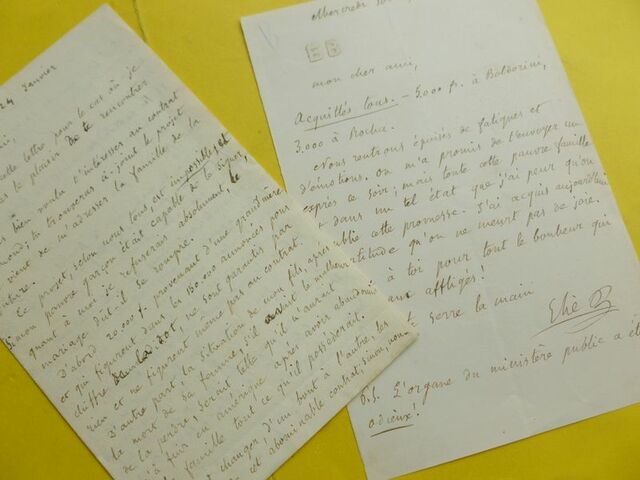 24 Janvier
lettre pour le cas où je
le plaisir de te rencontrer
bien voulu t'intéresser au contrat
tu trouveras ci-joint le projet
de m'adresser la famille de la
Le projet, selon nous tous, est impossible, et
Simon pauvre garçon était capable de le signer
quant à moi je refuserais absolument le
mariage dût-il se rompre.
D'abord 20.000 f. provenant d'une grand'mère
et qui figurent dans les 150.000 annoncés pour
chiffre de la dot, ne sont garantis par
rien et ne figurent même pas au contrat.
D'autre part la situation de mon fils, après
la mort de sa femme, s'il avait le malheur
de la perdre, serait telle qu'il n'aurait
à fuir en Amérique après avoir abandonné
famille tout ce qu'il posséderait.
changer d'un bout à l'autre, les
et abominable contrat, sinon, nous
Mercredi
EB
mon cher ami,
Acquittés tous. — 5.000 fr. à Baldorini,
3.000 à Rocha.
Nous rentrons épuisés de fatigues et
d'émotions. On m'a promis de t'envoyer un
exprès ce soir; mais toute cette pauvre famille
dans un tel état que j'ai peur qu'on
oublie cette promesse. J'ai acquis aujourd'hui
certitude qu'on ne meurt pas de joie.
à toi pour tout le bonheur qui
aux affligés!
serre la main
Elie
P.S. L'organe du ministère public a été
odieux!